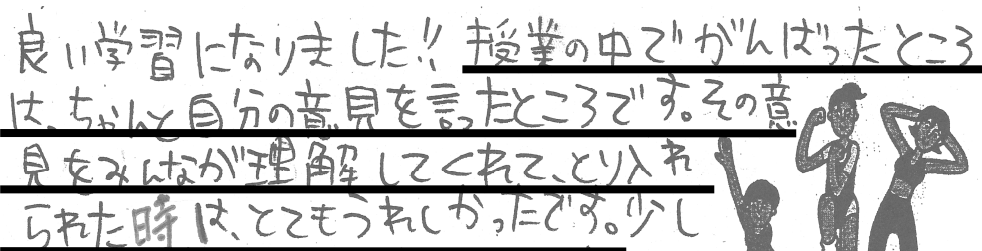 良い学習になりました!! 授業の中でがんばったところ
は、ちゃんと自分の意見を言ったところです。その意
見をみんなが理解してくれて、とり入れ
られた時は、とてもうれしかったです。少し